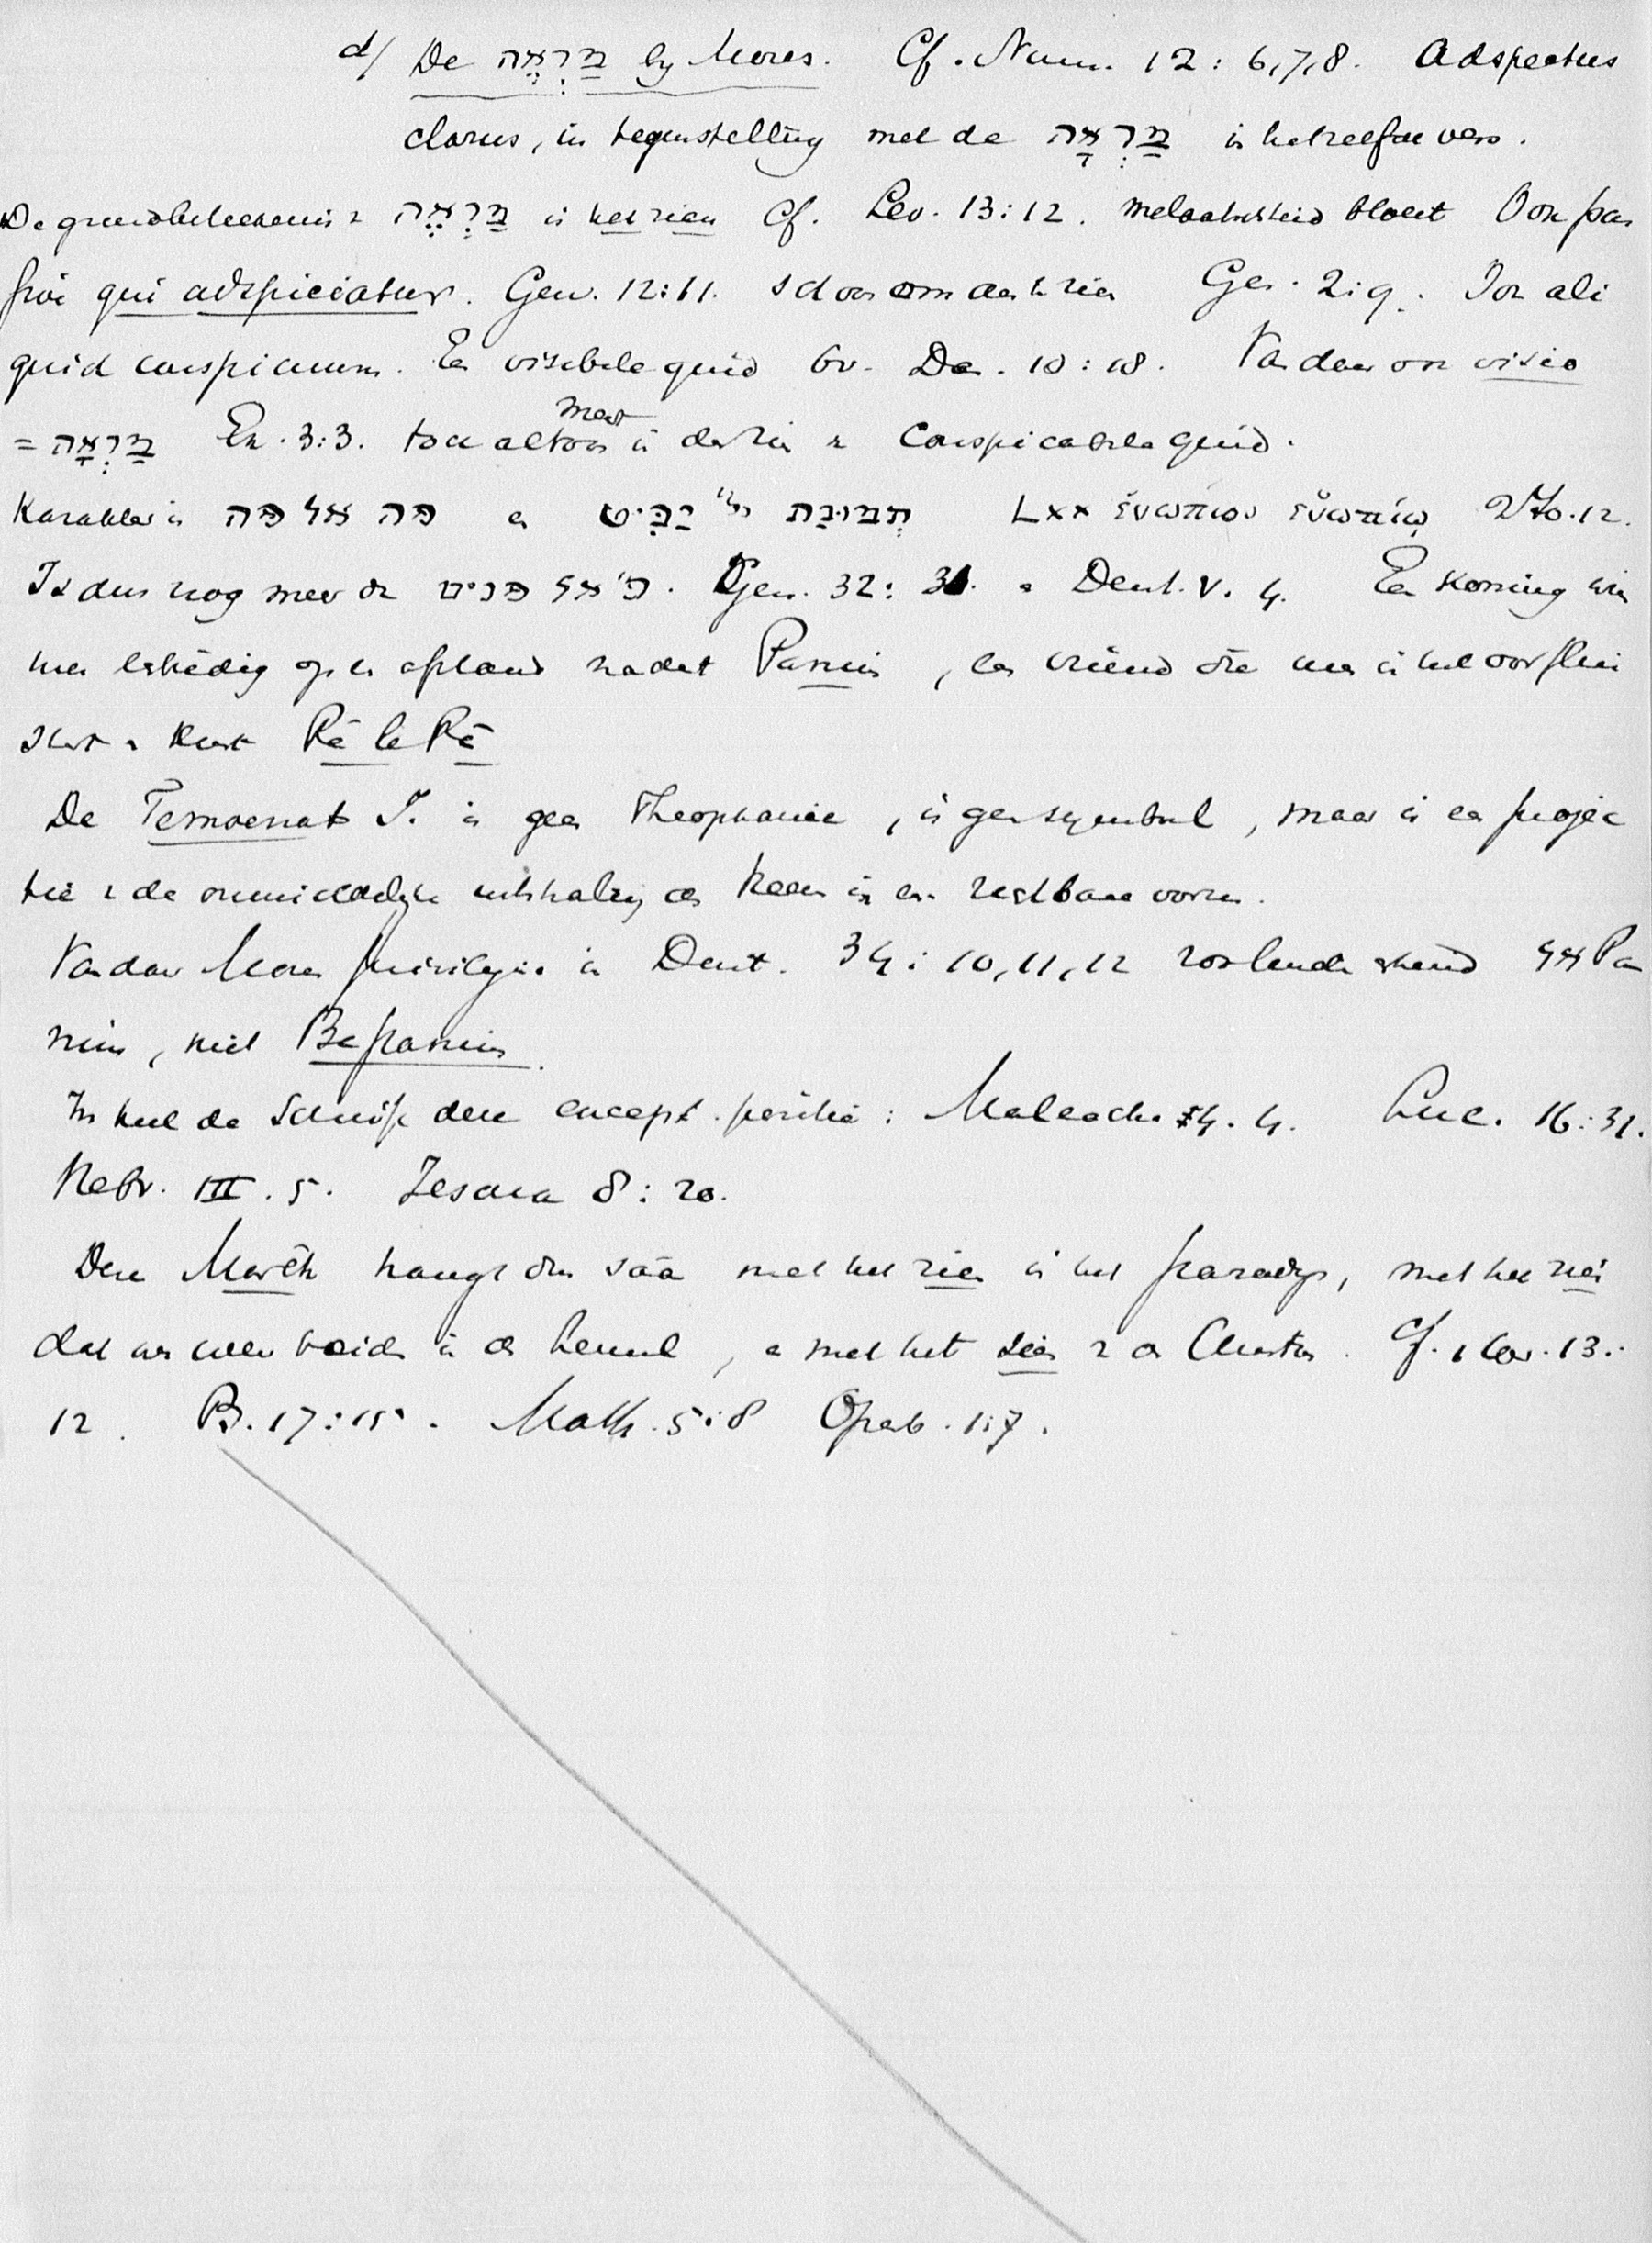 d/ De מַרְאֶה by Mozes. Cf. Num. 12: 6,7,8. Adspectus
clarus, in tegenstelling met de מַרְאָה in hetzelfde vers.
De grondbeteekenis v מַרְאֶה is het zien Cf. Lev. 13:12. melaatschheid bloeit Ook pas
sivi qui adspiciatur. Gen. 12:11. schoon om aan te zien Gen. 2:9. Ook ali
quid conspicuum. En visibile quid bv. Dan. 10:18. Vandaar ook visio
= מַרְאָה Ex. 3:3. toch altoos meest is der zien v conspicabile quid.
Karakter is פה אל פה en תְּמוּנַת יי יַבִּיט LXX ἐνώπιον ἐνωπίῳ
Is dus nog meer dan פנים אל פנים. Gen. 32: 31. en Deut. V. 4. Een Koning wien
men eerbiedig op een afstand nadert Panim, een vriend die men in het oor fluis
tert en kust Pè le Pè
De Temoenat J. is geen Theophanie, is geen symbool, maar is een projec
tie v de onmiddelyke uitstraling des Heeren in een zichtbare vorm.
Vandaar Mozes privilegie in Deut. 34: 10,11,12 zoo beteekenend אל Pa
nim, niet Bepanim.
In heel de Schrift deze except. positie: Maleachi 4. 4. Luc. 16:31.
Hebr. III. 5. Jesaia 8: 20.
Deze Marèh hangt dus saam met het zien in het paradys, met het zien
dat ons weer beidt in de hemel, en met het zien v de Christus. Cf. 1 Cor. 13:
12. Ps. 17:15. Matth. 5:8 Openb. 1:7.